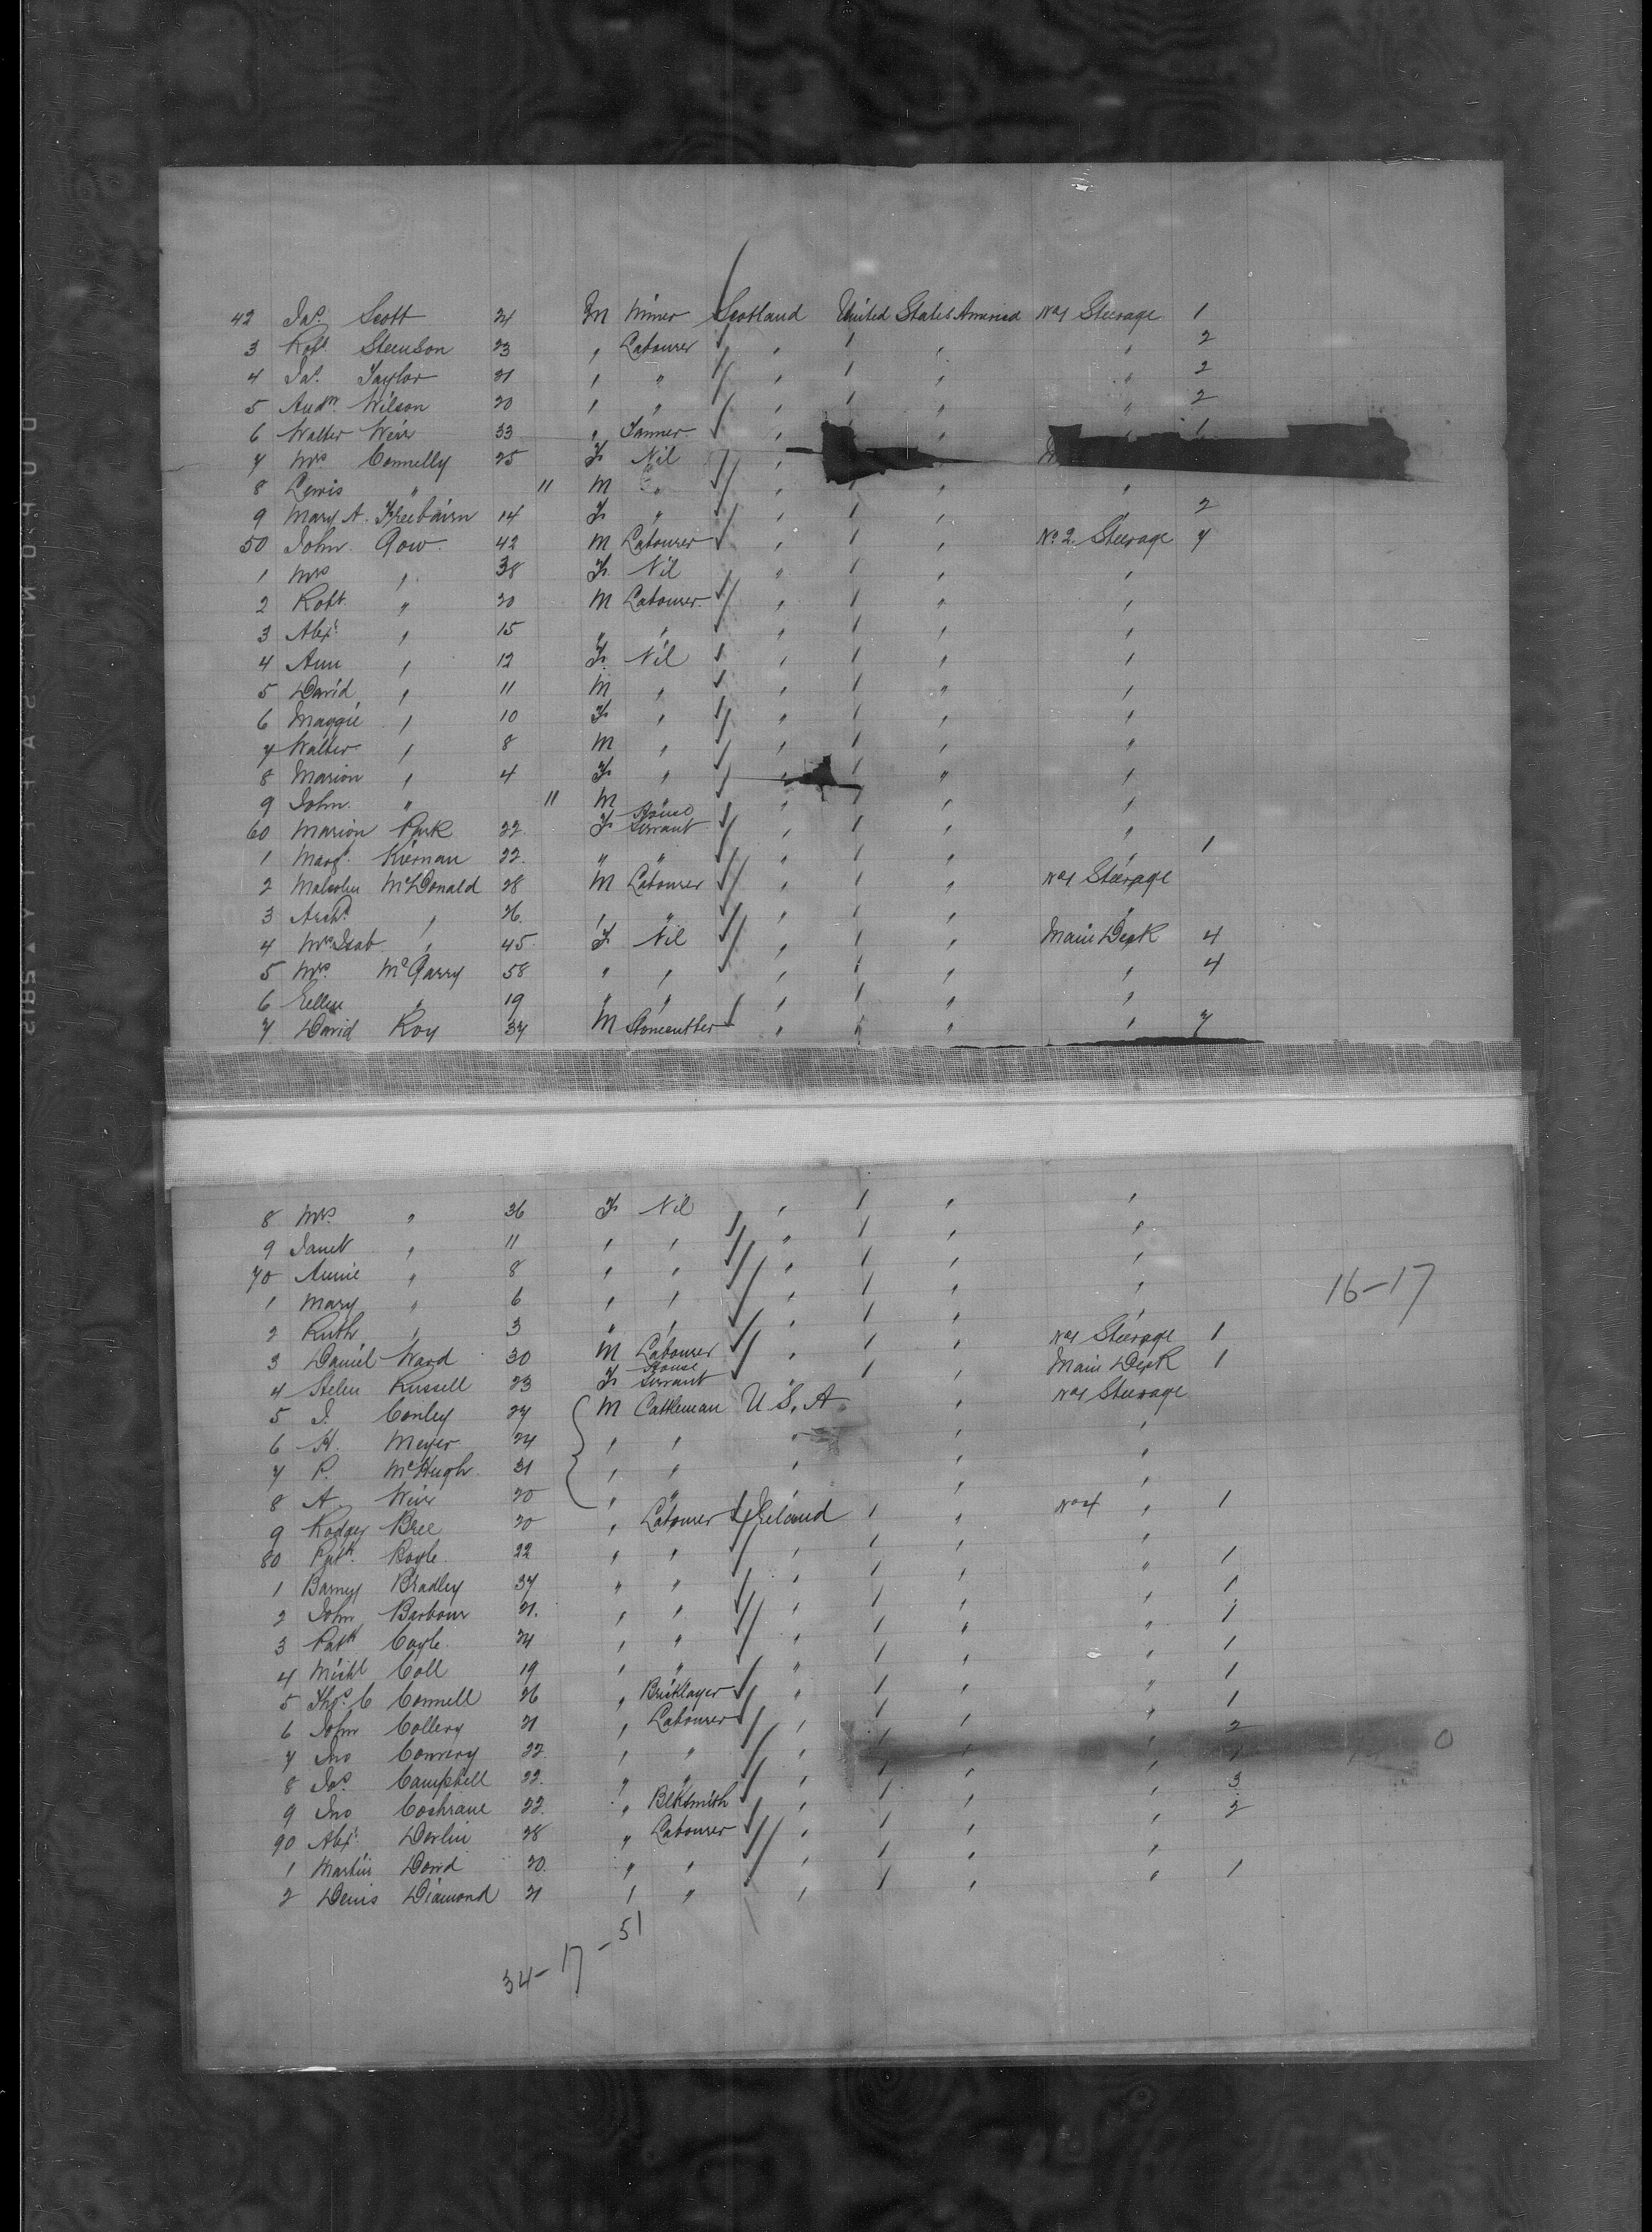 42 Jas. Scott 24 M Miner Scotland United States America No 1 Steerage 1
3 Robt. Steenson 23 " Labourer " " " " 2
4 Jas. Taylor 21 " " " " " " 2
5 Andw. Wilson 20 " " " " " " 2
6 Walter Weir 33 " " " " 1
7 Mrs Connelly 25 F Nil "
8 Lewis " 11 M " " " " "
9 Mary A. Freebairn 14 F " " " " 2
50 John Gow 42 M Labourer " " " No 2 Steerage 7
1 Mrs " 38 F Nil " " " "
2 Robt " 20 M Labourer " " " "
3 Alexr " 15 " " " " " "
4 Ann " 12 F Nil " " " "
5 David " 11 M " " " " "
6 Maggie " 10 F " " " " "
7 Walter " 8 M " " " " "
8 Marion " 4 F " " " " "
9 John " 11 M " " " "
60 Marion Park 22 F House Servant " " " "
1 Margt. Kiernan 22 " " " " " " 1
2 Malcolm McDonald 28 M Labourer " " " No 1 Steerage
3 Archd. " 26 " " " " " "
4 Mrs Isab " 45 F Nil " " " Main Deck 4
5 Mrs. McGarry 58 " " " " " " 4
6 Ellen " 19 " " " " " "
7 David Roy 37 M Stonecutter " " " " 7
8 Mrs. " 36 F Nil " " " "
9 Janet " 11 " " " " " "
70 Annie " 8 " " " " " "
16-17
1 Mary " 6 " " " " " "
2 Ruth " 3 " " " " "
3 Daniel Ward 30 M Labourer " " " No 1 Steerage 1
4 Helen Russell 23 F House Servant " " Main Deck 1
5 J. Conley 27 M Cattleman U.S.A " No 1 Steerage
6 H. Meyer 24 " " " " "
7 P. McHugh 31 " " " " "
8 A. Weir 20 " " " "
9 Rodger Bree 20 " Labourer Ireland " " No 4 " 1
80 Patk. Boyle 22 " " " " " "
1 Barney Bradley 37 " " " " " " 1
2 John Barbour 21 " " " " " " 1
3 Patk Coyle 24 " " " " " " 1
4 Michl Coll 19 " " " " " 1
5 Thos. C Connell 26 " Bricklayer " " " " 1
6 John Collery 21 " Labourer " " " " 1
7 Jno Connery 22 " " " " " " 2
8 Jas. Campbell 22 " " " " " " 1
9 Jno Cochrane 22 " Blksmith " " " " 3
90 Alexr. Devlin 28 " Labourer " " " " 2
1 Martin 20 " " " " " "
2 Denis Diamond 21 " " " " " " 1
34-17-51